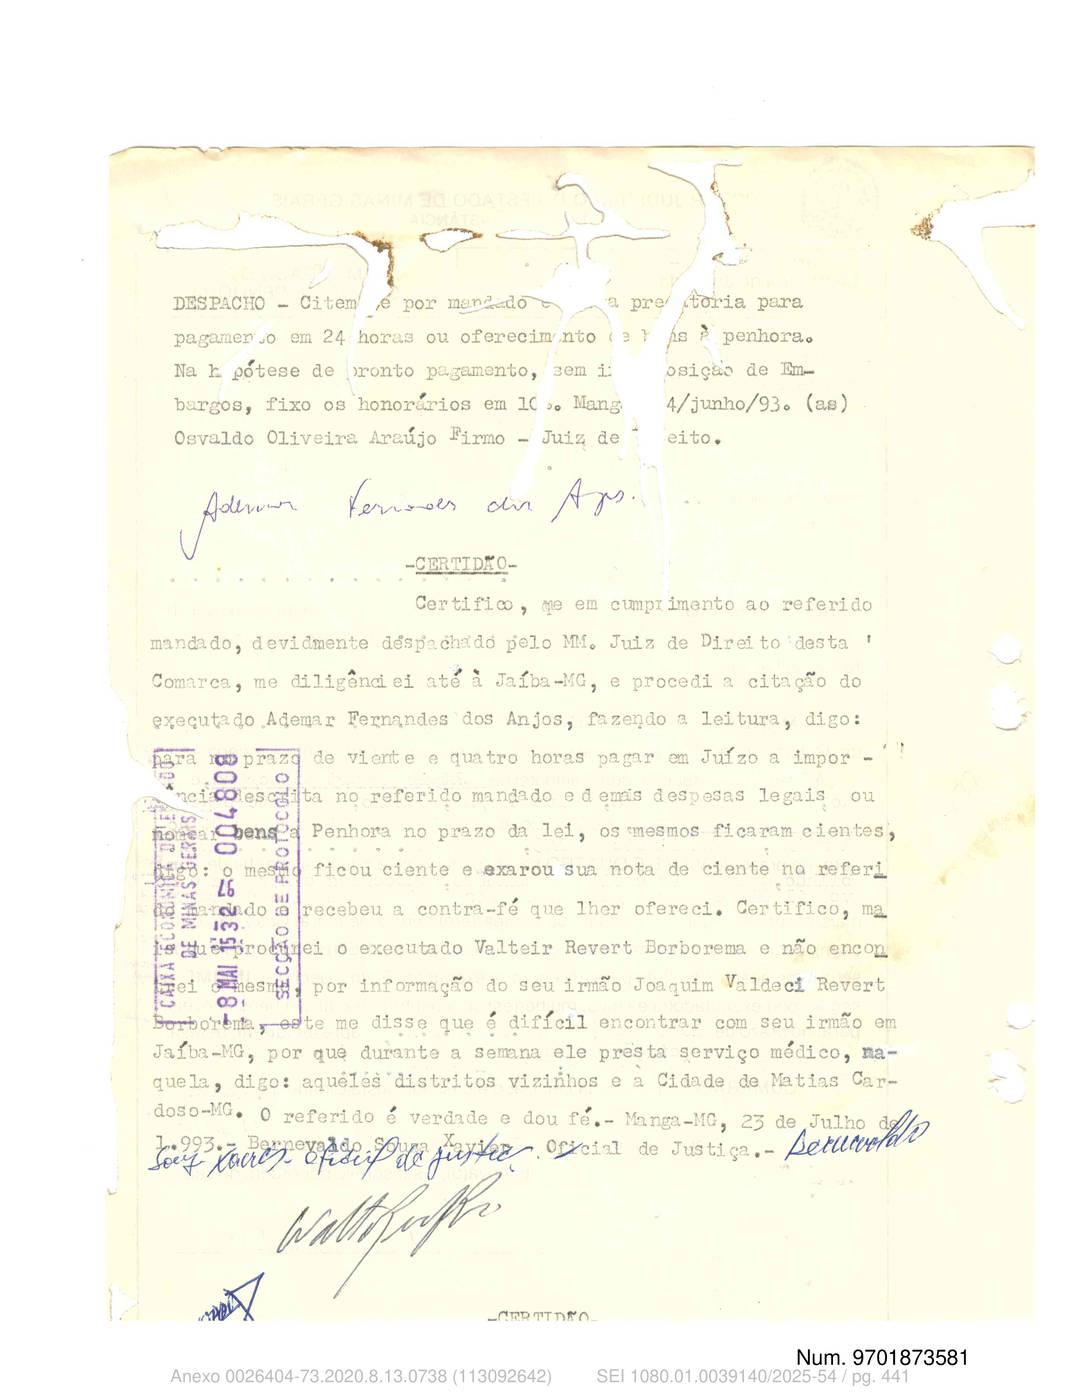 DESPACHO - Citem e por mandado e a pre atoria para
pagamento em 24 horas ou oferecimento de b ns à penhora.
Na h pótese de pronto pagamento, sem i osição de Em-
bargos, fixo os honorários em 10%. Manga 4/junho/93. (as)
Osvaldo Oliveira Araújo Firmo - Juiz de eito.
Ademar Fernandes dos Anjos.
-CERTIDÃO-
Certifico, que em cumprimento ao referido
mandado, devidmente déspachado pelo MM. Juiz de Direito desta '
Comarca, me diligênciei até à Jaíba-MG, e procedi a citação do
exequtado Ademar Fernandes dos Anjos, fazendo a leitura, digo:
para no prazo de viente e quatro horas pagar em Juízo a impor -
ância descrita no referido mandado e demas despesas legais ou
nomear bens a Penhora no prazo da lei, os mesmos ficaram cientes,
digo: o mesmo ficou ciente e exarou sua nota de ciente no referi
do mandado recebeu a contra-fé que lher ofereci. Certifico, ma
is que procurei o executado Valteir Revert Borborema e não encon
trei o mesmo, por informação do seu irmão Joaquim Valdeci Revert
Borborema, este me disse que é difícil encontrar com seu irmão em
Jaíba-MG, por que durante a semana ele presta serviço médico, na-
quela, digo: aquéles distritos vizinhos e à Cidade de Matias Car-
doso-MG. O referido é verdade e dou fé.- Manga-MG, 23 de Julho de
1.993.- Bernevaldo Souza Xavier Oficial de Justiça.- Bernevaldo
Souz Xavier - Oficial de Justiça.
CAIXA ECONOMICA DO ESTADO
DE MINAS GERAIS
-8 MAI 1532 004808
SECÇÃO DE PROTOCOLO
-CERTIDÃO-
Num. 9701873581
Anexo 0026404-73.2020.8.13.0738 (113092642) SEI 1080.01.0039140/2025-54 / pg. 441